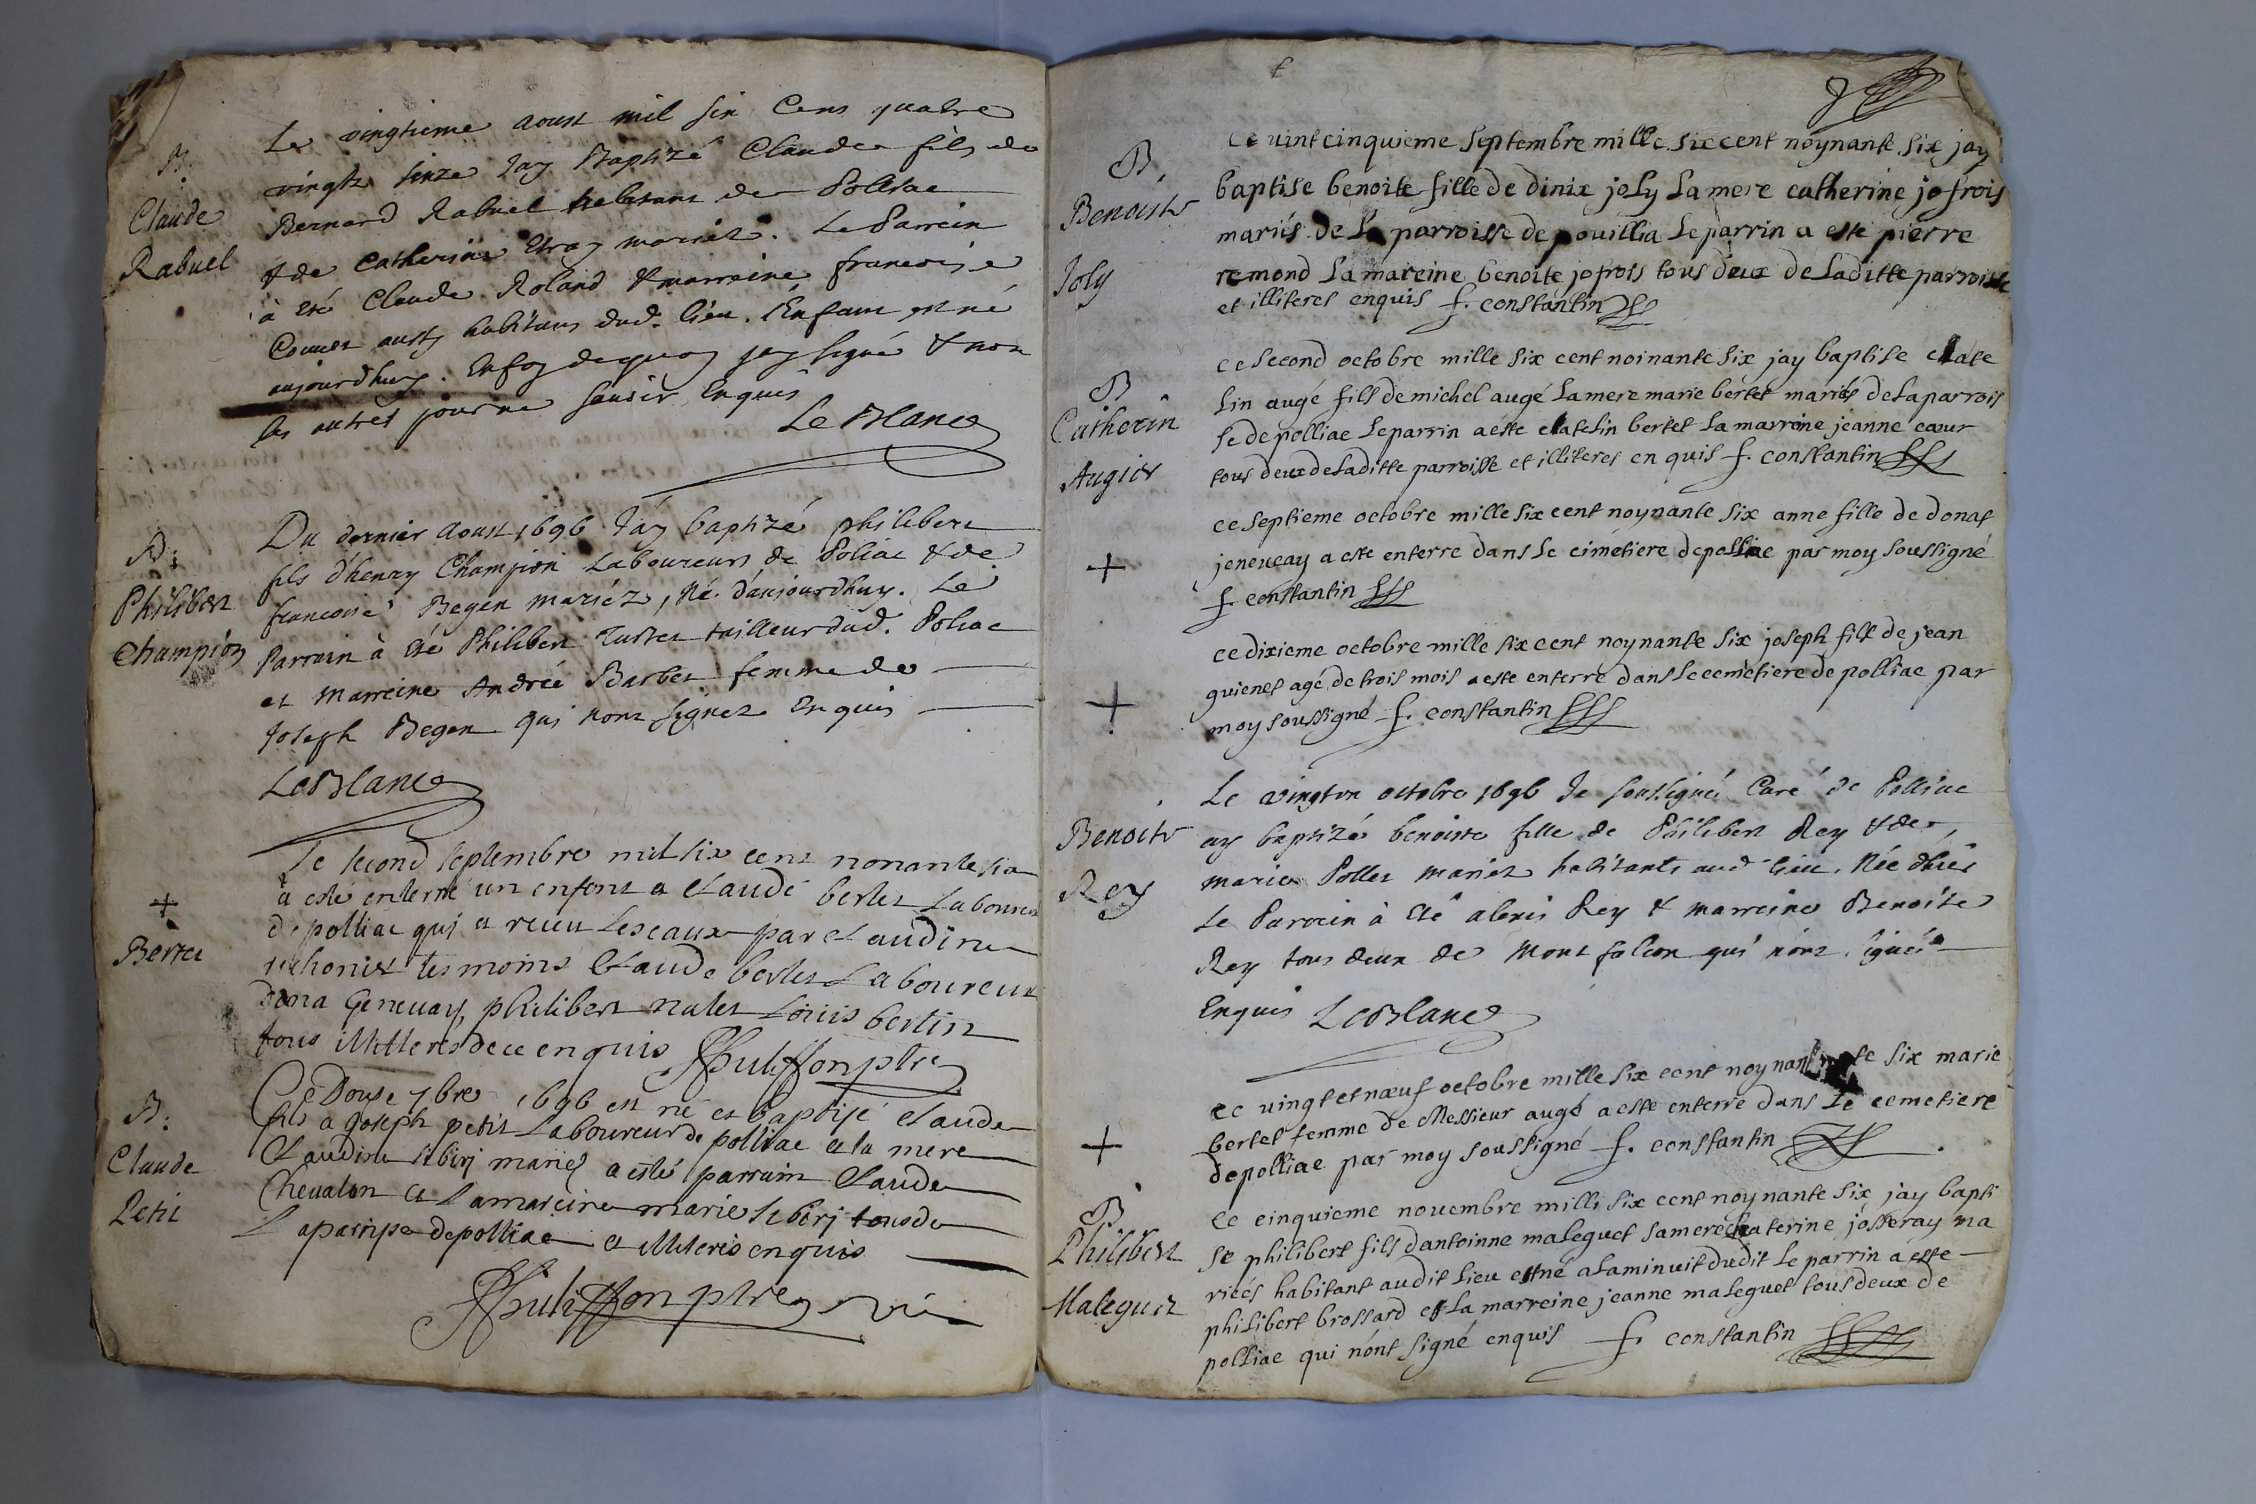 B.
Claude
Rabuel
Le vingtieme aoust mil six Cens quatre
vingts seize Jay Baptizé Claude fils de
Bernard Rabuel habitant de Polliac
& de Catherine mariez. Le Parrein
à été Claude Roland & marraine francoise
aussy habitans dud. lieu. L'Enfant est né
aujourdhuy. En foy dequoy jay signé & non
les autres pour ne savoir Enquis
LeBlanc
B:
Philibert
Champion
Du dernier Aoust 1696 J'ay baptizé philibert
fils d'henry Champion Laboureurs de Poliac & de
francoise Begen mariéz, Né daujourdhuy. Le
Parrain à été Philibert tailleur dud. Poliac
et Marreine Andrée Barbet femme de
Joseph Begen qui n'ont signez Enquis
LeBlanc
+
Bertet
Le second septembre mil six cent nonante six
a esté enterré un enfent a Claude bertet Laboureur
de polliac qui a receu les eaux par Claudine
tesmoins Claude bertet Laboureur
dona Genevay, philibert nalet Louis bertin
tous illitteres de ce enquis ptre
B:
Claude
Petit
Ce Douse 7bre 1696 est né et baptisé Claude
fils a Joseph petit Laboureur de polliac et la mere
Claudine mariés a esté parrain Claude
Chevalon et La mareine marie tous de
La paroisse de polliac et illiteres enquis
ptre
B.
Benoiste
Joly
Ce vint cinquieme Septembre mille six cent noynante six jay
baptise benoite fille de dinix joly La mere catherine jofrois
mariés de La parroisse de pouillia Le parrin a este pierre
remond La mareine benoite jofrois tous deux de Laditte parroisse
et illiteres enquis f. constantin
B
Catherin
Augier
ce Second octobre mille six cent noinante six jay baptise
Lin augé fils de michel augé La mere marie bertet mariés de La parrois
se de polliac Le parrin a este bertet La marrine jeanne cœur
tous deux de Laditte parroisse et illiteres en quis f. constantin
+
ce Septieme octobre mille six cent noynante six anne fille de donas
jenevay a este enterre dans le cimetiere de polliac par moy soussigné
f. constantin
+
ce dixieme octobre mille six cent noynante six joseph fils de jean
guienet agé de trois mois a este enterre dans le cemetiere de polliac par
moy soussigné f. constantin
Benoite
Rey
Le vingt un octobre 1696 Je soussigné Curé de Polliac
ay baptizé benoiste fille de Philibert Rey & de
marie Pollet mariez habitants aud lieu. Née d'hier
Le Parrain à été alexis Rey & marreine Benoiste
Rey tous deux de Mont falcon qui n'ont signé
Enquis LeBlanc
+
ce vingt et nœuf octobre mille six cent noynante six marie
bertet femme de Messieur augé a este enterre dans Le cemetiere
de polliac par moy soussigné f. constantin
B
Philibert
Maleguet
Ce cinquieme novembre mille six cent noynante six jay bapti
se philibert fils dantoinne maleguet sa mere caterine josseray ma
riés habitant audit lieu est né a La minuit dudit Le parrin a este
philibert brossard et La marreine jeanne maleguet tous deux de
polliac qui n'ont signé enquis f. constantin